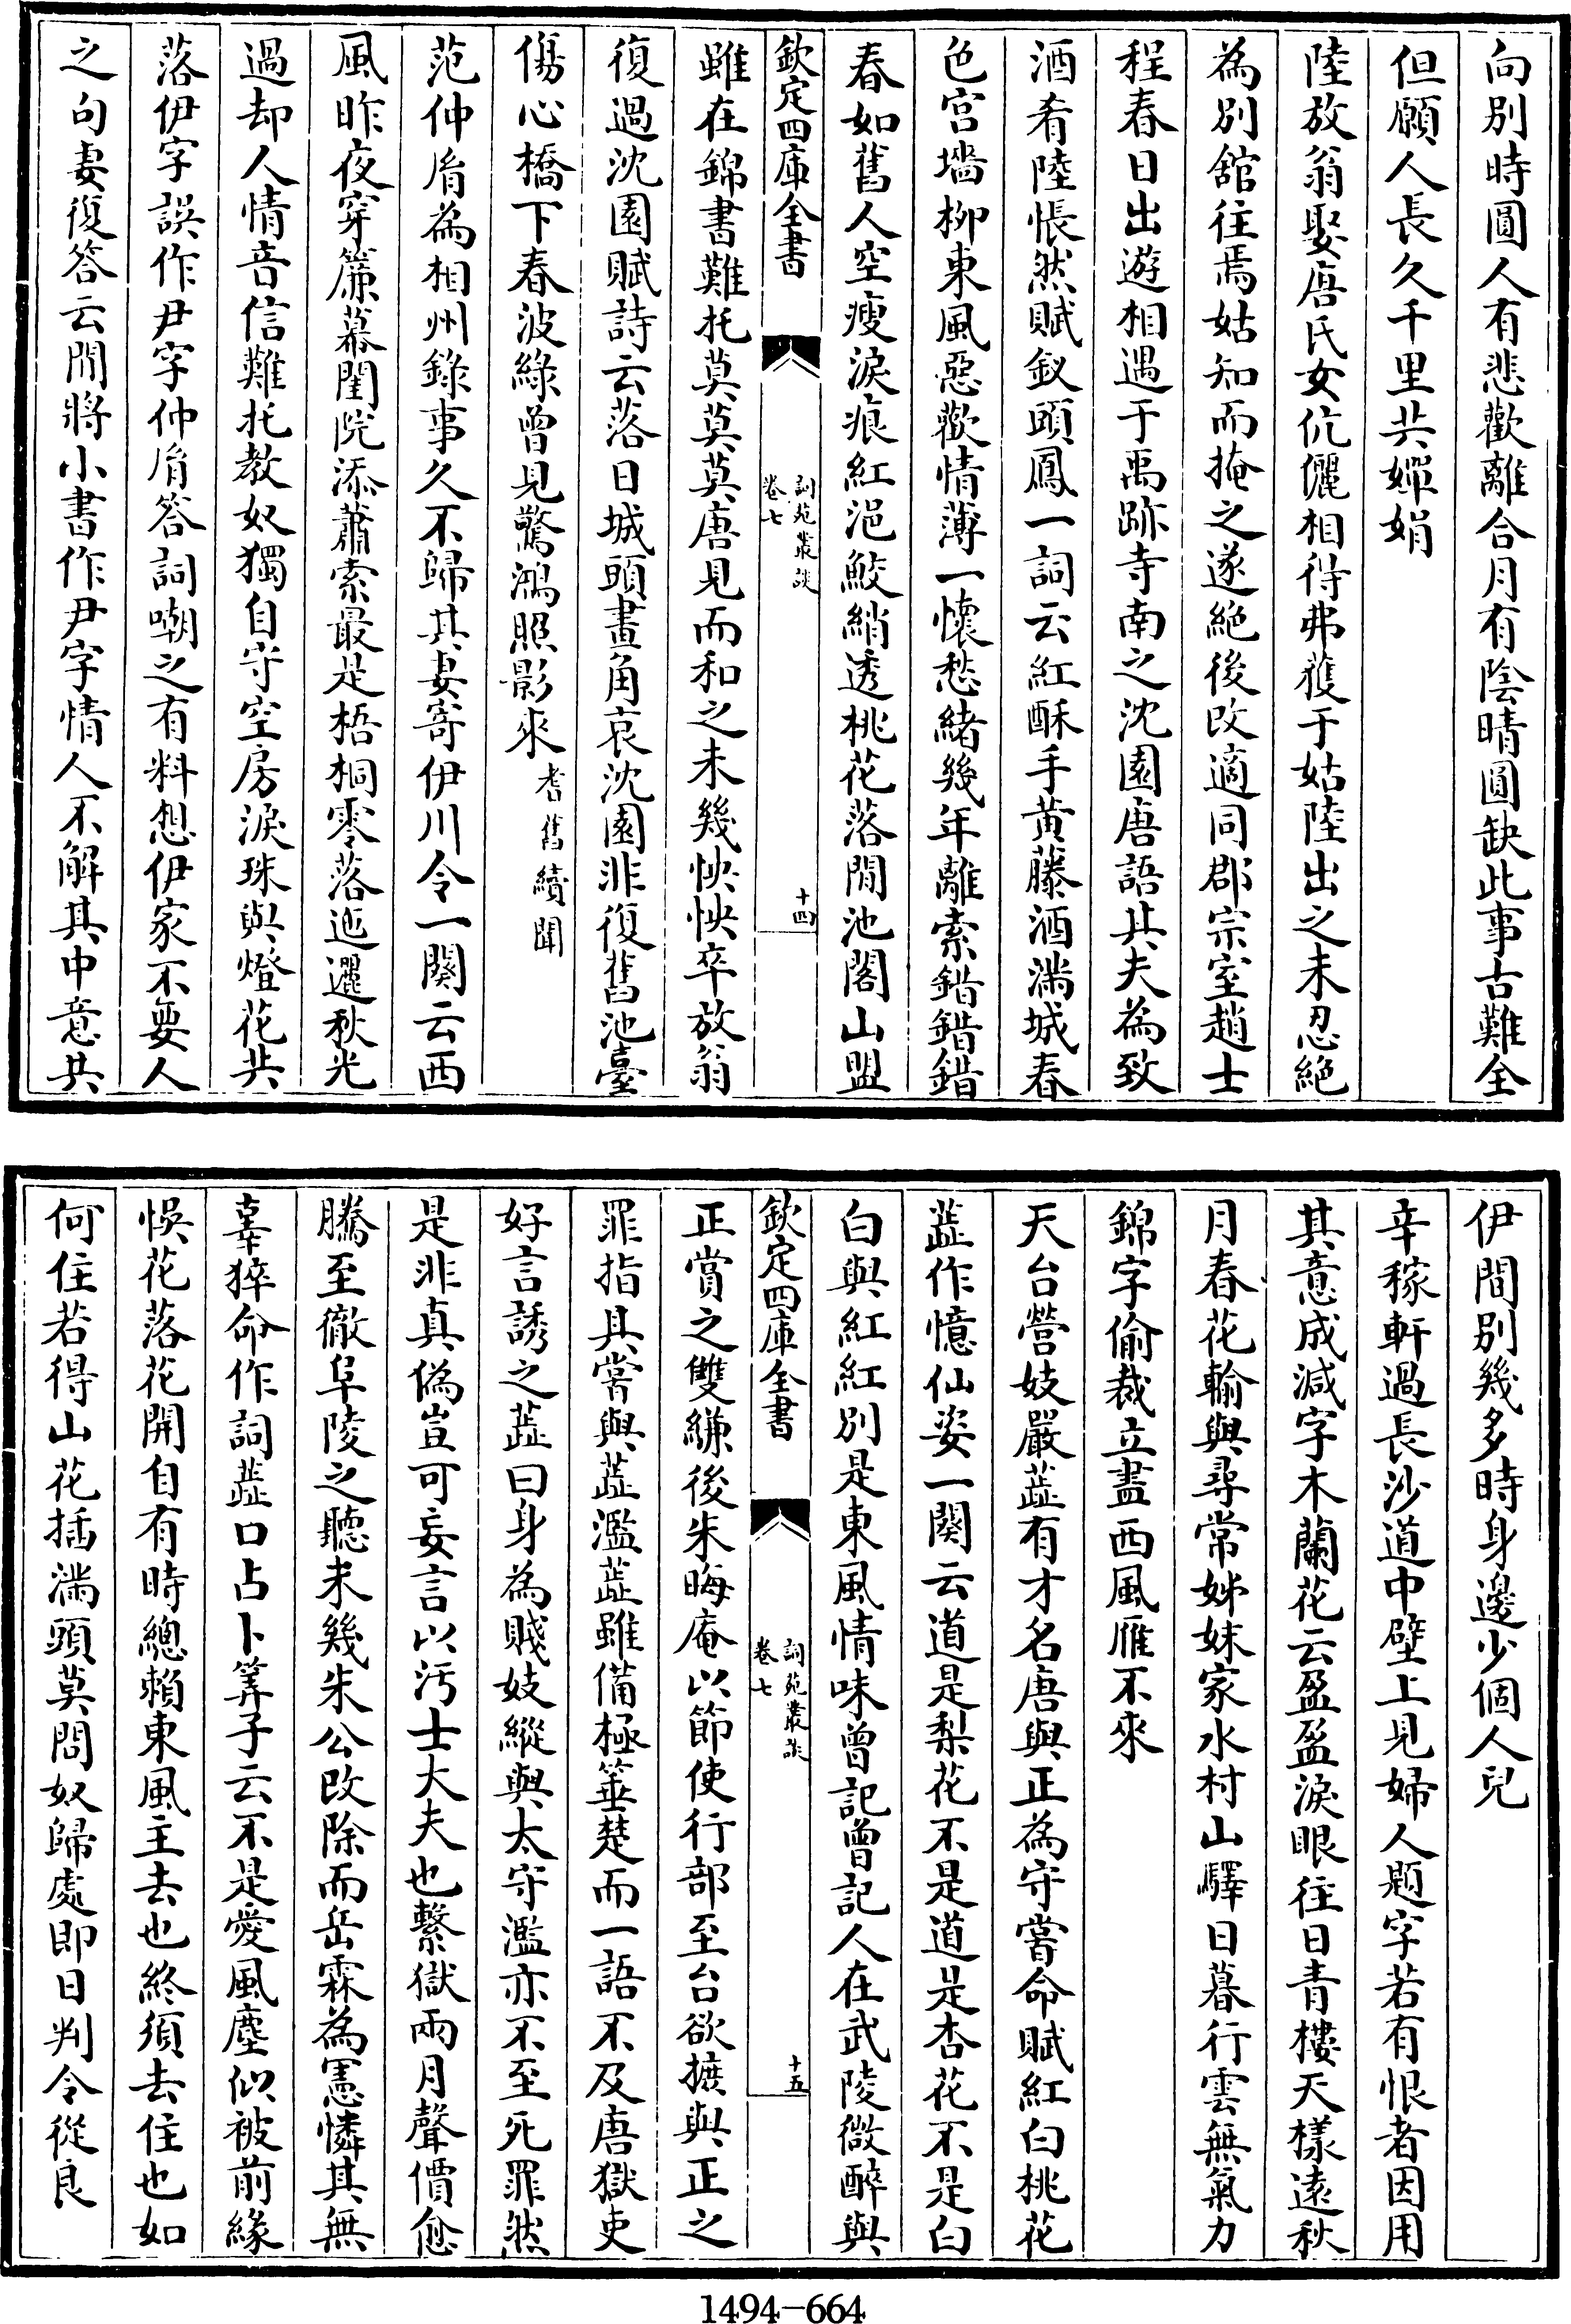 向别時圓人有悲歡離合月有陰晴圓缺此事古難全
但願人長久千里共嬋娟
陸放翁娶唐氏女伉儷相得弗獲于姑陸出之未忍絶
為别館往焉姑知而掩之遂絶後改適同郡宗室趙士
程春日出遊相遇于禹跡寺南之沈園唐語其夫為致
酒肴陸悵然賦釵頭鳳一詞云紅酥手黄藤酒滿城春
色宫墻柳東風惡歡情薄一懷愁緒幾年離索錯錯錯
春如舊人空瘦淚痕紅浥鮫綃透桃花落閒池閣山盟
欽定四庫全書
詞苑叢談
卷七
十四
雖在錦書難托莫莫莫唐見而和之未幾怏怏卒放翁
復過沈園賦詩云落日城頭畫角哀沈園非復舊池臺
傷心橋下春波綠曾見驚鴻照影來耆舊續聞
范仲胤為相州錄事久不歸其妻寄伊川令一闋云西
風昨夜穿簾幕閨院添蕭索最是梧桐零落迤邐秋光
過却人情音信難托教奴獨自守空房淚珠與燈花共
落伊字誤作尹字仲胤答詞嘲之有料想伊家不要人
之句妻復答云閒將小書作尹字情人不解其中意共
伊間别幾多時身邊少個人兒
辛稼軒過長沙道中壁上見婦人題字若有恨者因用
其意成減字木蘭花云盈盈淚眼往日青樓天様遠秋
月春花輸與尋常姊妹家水村山驛日暮行雲無氣力
錦字偷裁立盡西風雁不來
天台營妓嚴蕋有才名唐與正為守嘗命賦紅白桃花
蕋作憶仙姿一闋云道是梨花不是道是杏花不是白
白與紅紅别是東風情味曾記曾記人在武陵微醉與
欽定四庫全書
詞苑叢談
卷七
十五
正賞之雙縑後朱晦庵以節使行部至台欲摭與正之
罪指其嘗與蕋濫蕋雖備極箠楚而一語不及唐獄吏
好言誘之蕋曰身為賤妓縱與太守濫亦不至死罪然
是非真偽豈可妄言以汚士大夫也繫獄兩月聲價愈
騰至徹阜陵之聽未幾朱公改除而岳霖為憲憐其無
辜猝命作詞蕋口占卜算子云不是愛風塵似被前緣
悞花落花開自有時總賴東風主去也終須去住也如
何住若得山花插滿頭莫問奴歸處即日判令從良
1494-664